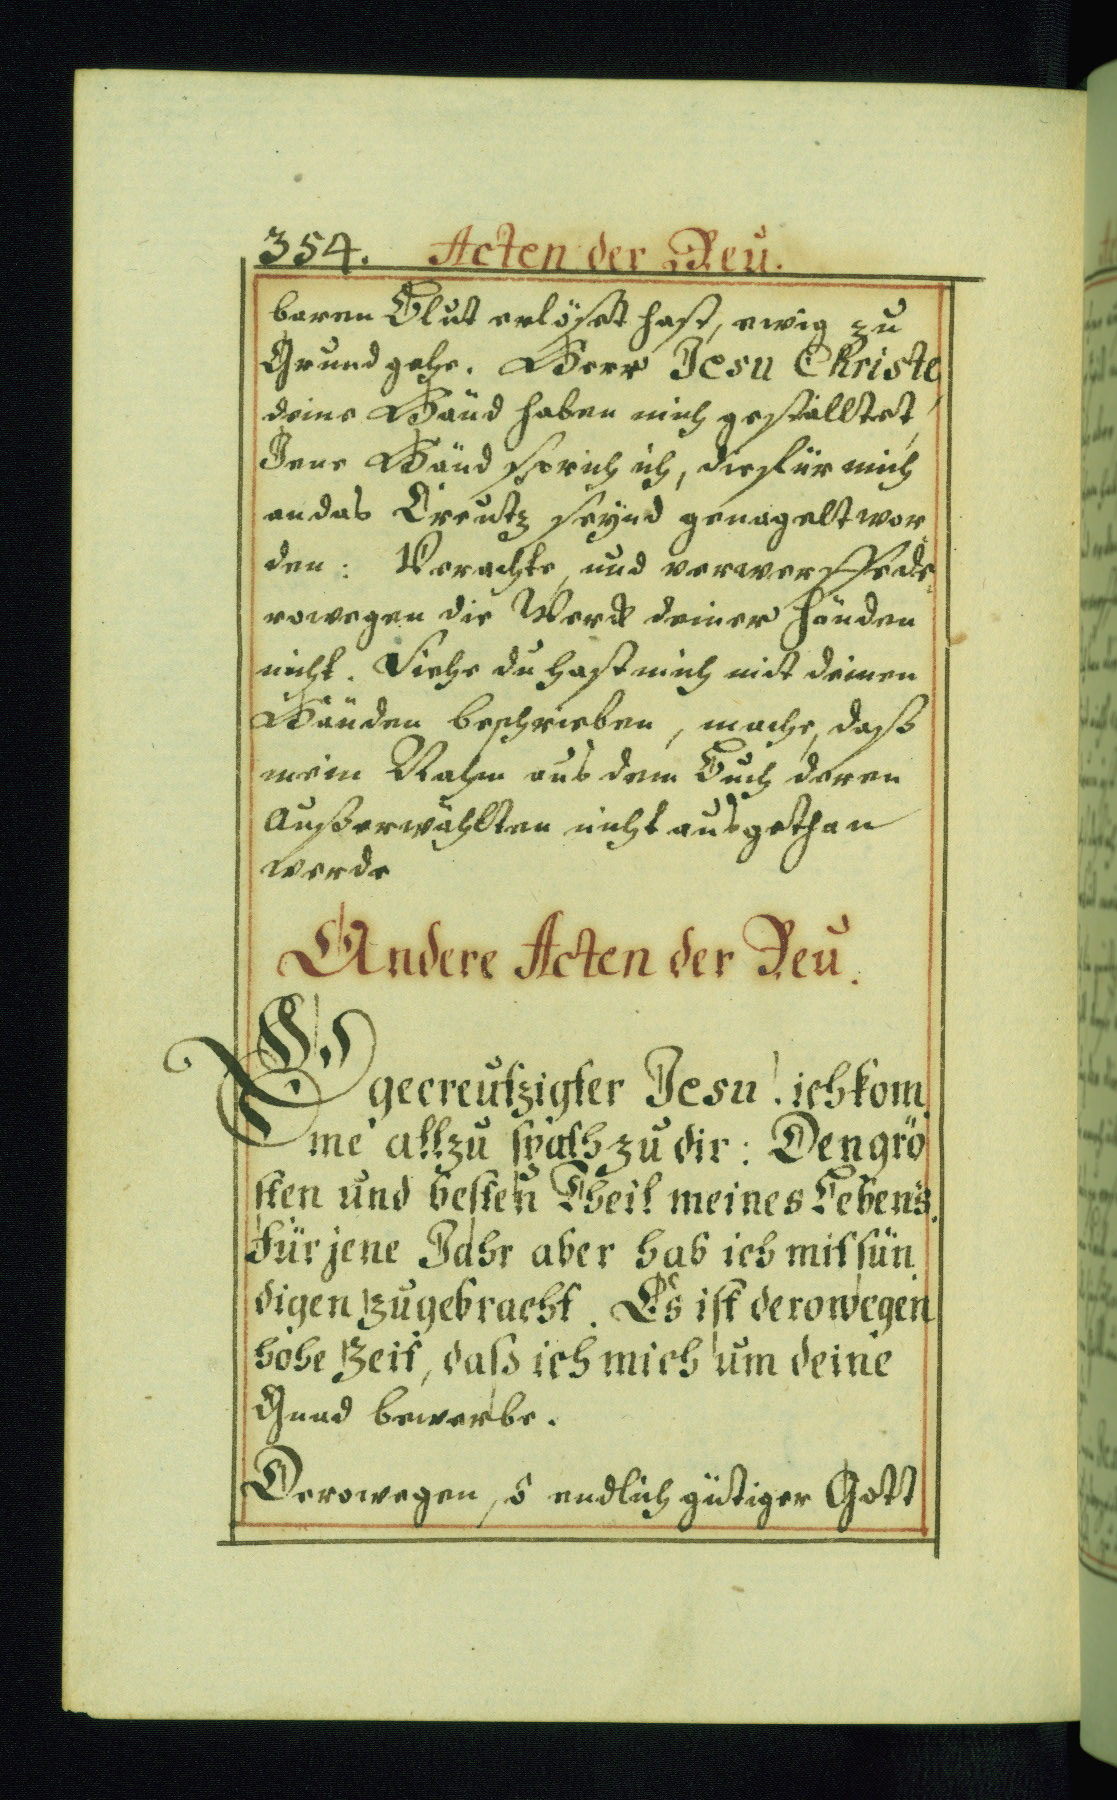 354. Acten der Reu.
baren Blut erlöset hast, ewig zu
Grund gehe. Herr Jesu Christe,
deine Händ haben mich gestalltet,
Jene Händ sprich ich, die für mich
an das Creutz seynd genagelt wor
den: Verachte, und verwerffe de-
rowegen die Werck deiner Händen
nicht. Siehe du hast mich mit deinen
Händen beschrieben, mache, daß
mein Nahm aus dem Buch deren
Außerwählten nicht ausgethan
werde
Andere Acten der Reu.
O gecreutzigter Jesu! ich kom
me allzu spath zu dir: Den grö
sten und besten Theil meines Lebens.
Für jene Jahr aber hab ich mit sün
digen zugebracht. Es ist derowegen
hohe Zeit, daß ich mich um deine
Gnad bewerbe.
Derowegen, ô endlich gütiger Gott